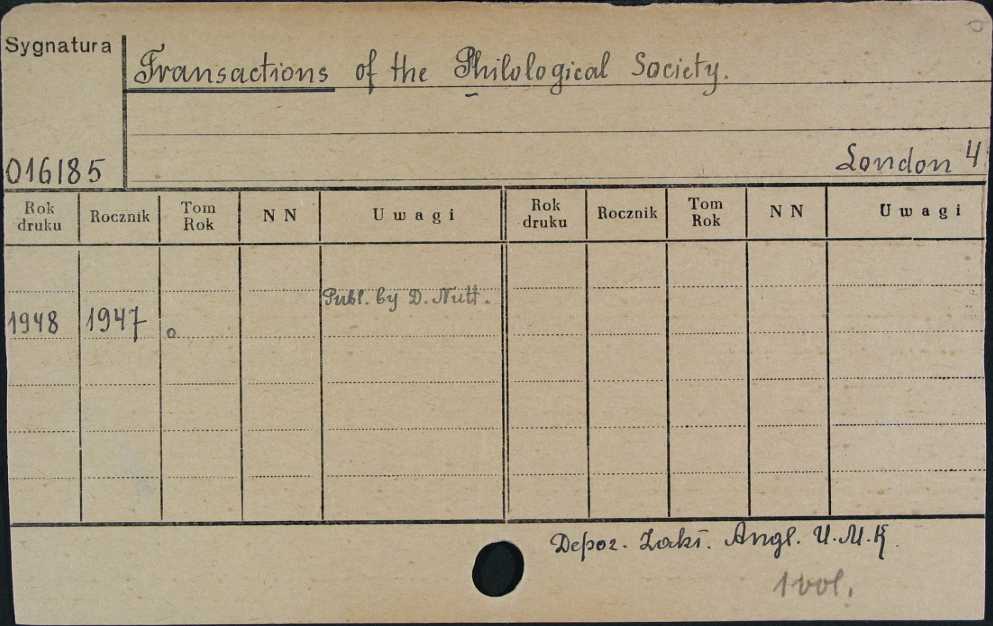 Sygnatura
Transactions of the Philological Society.
016185
London 4
Rok druku Rocznik Tom Rok N N Uwagi Rok druku Rocznik Tom Rok N N Uwagi
Publ. by D. Nutt.
1948 1947 o
Depoz. Zakł. Angl. U.M.K.
1 vol.